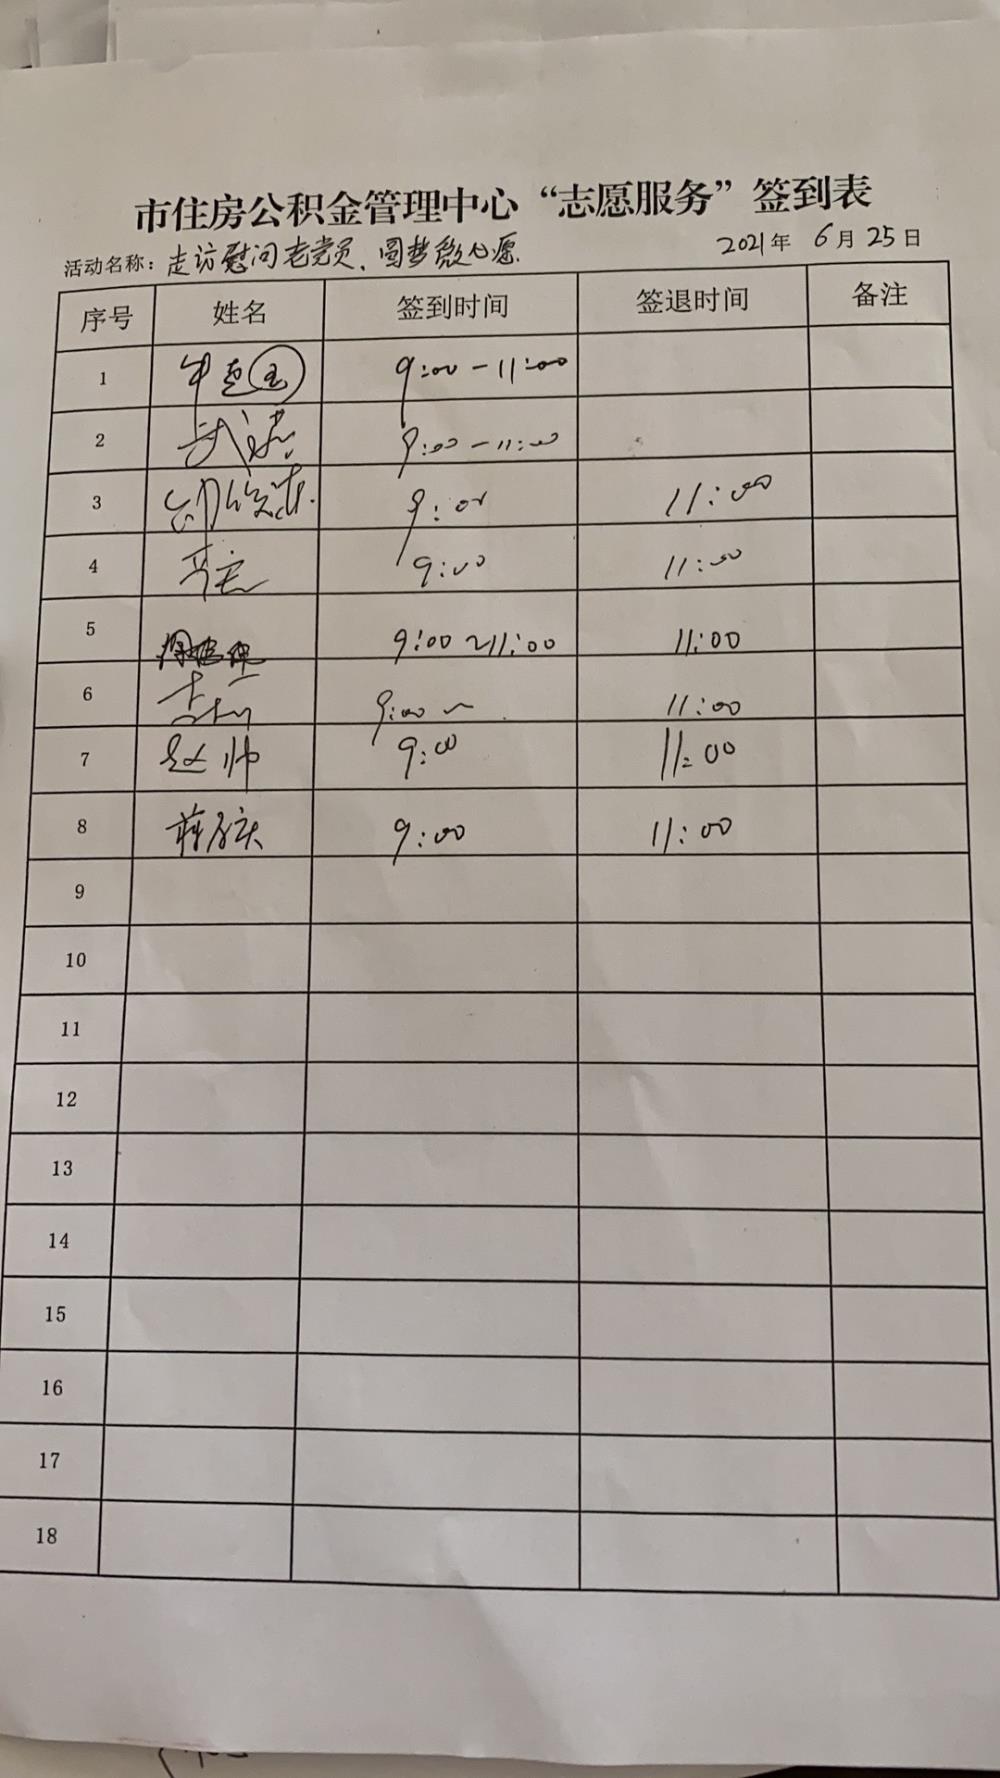 市住房公积金管理中心“志愿服务”签到表
活动名称：走访慰问老党员、圆梦微心愿 2021年 6月25日
序号 姓名 签到时间 签退时间 备注
1 9:00-11:00
2 9:00-11:00
3 9:00 11:00
4 9:00 11:00
5 9:00~11:00 11:00
6 9:00~ 11:00
7 赵帅 9:00 11:00
8 9:00 11:00
9
10
11
12
13
14
15
16
17
18